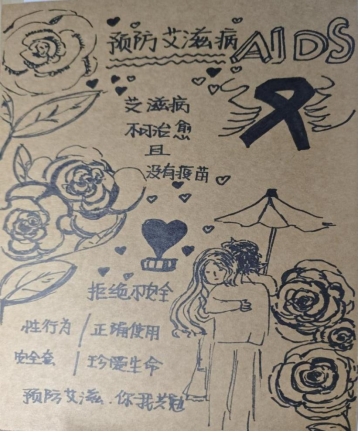 预防艾滋病 AIDS
艾滋病
不可治愈
且
没有疫苗
拒绝不安全
性行为/正确使用
安全套/珍爱生命
预防艾滋.你我共